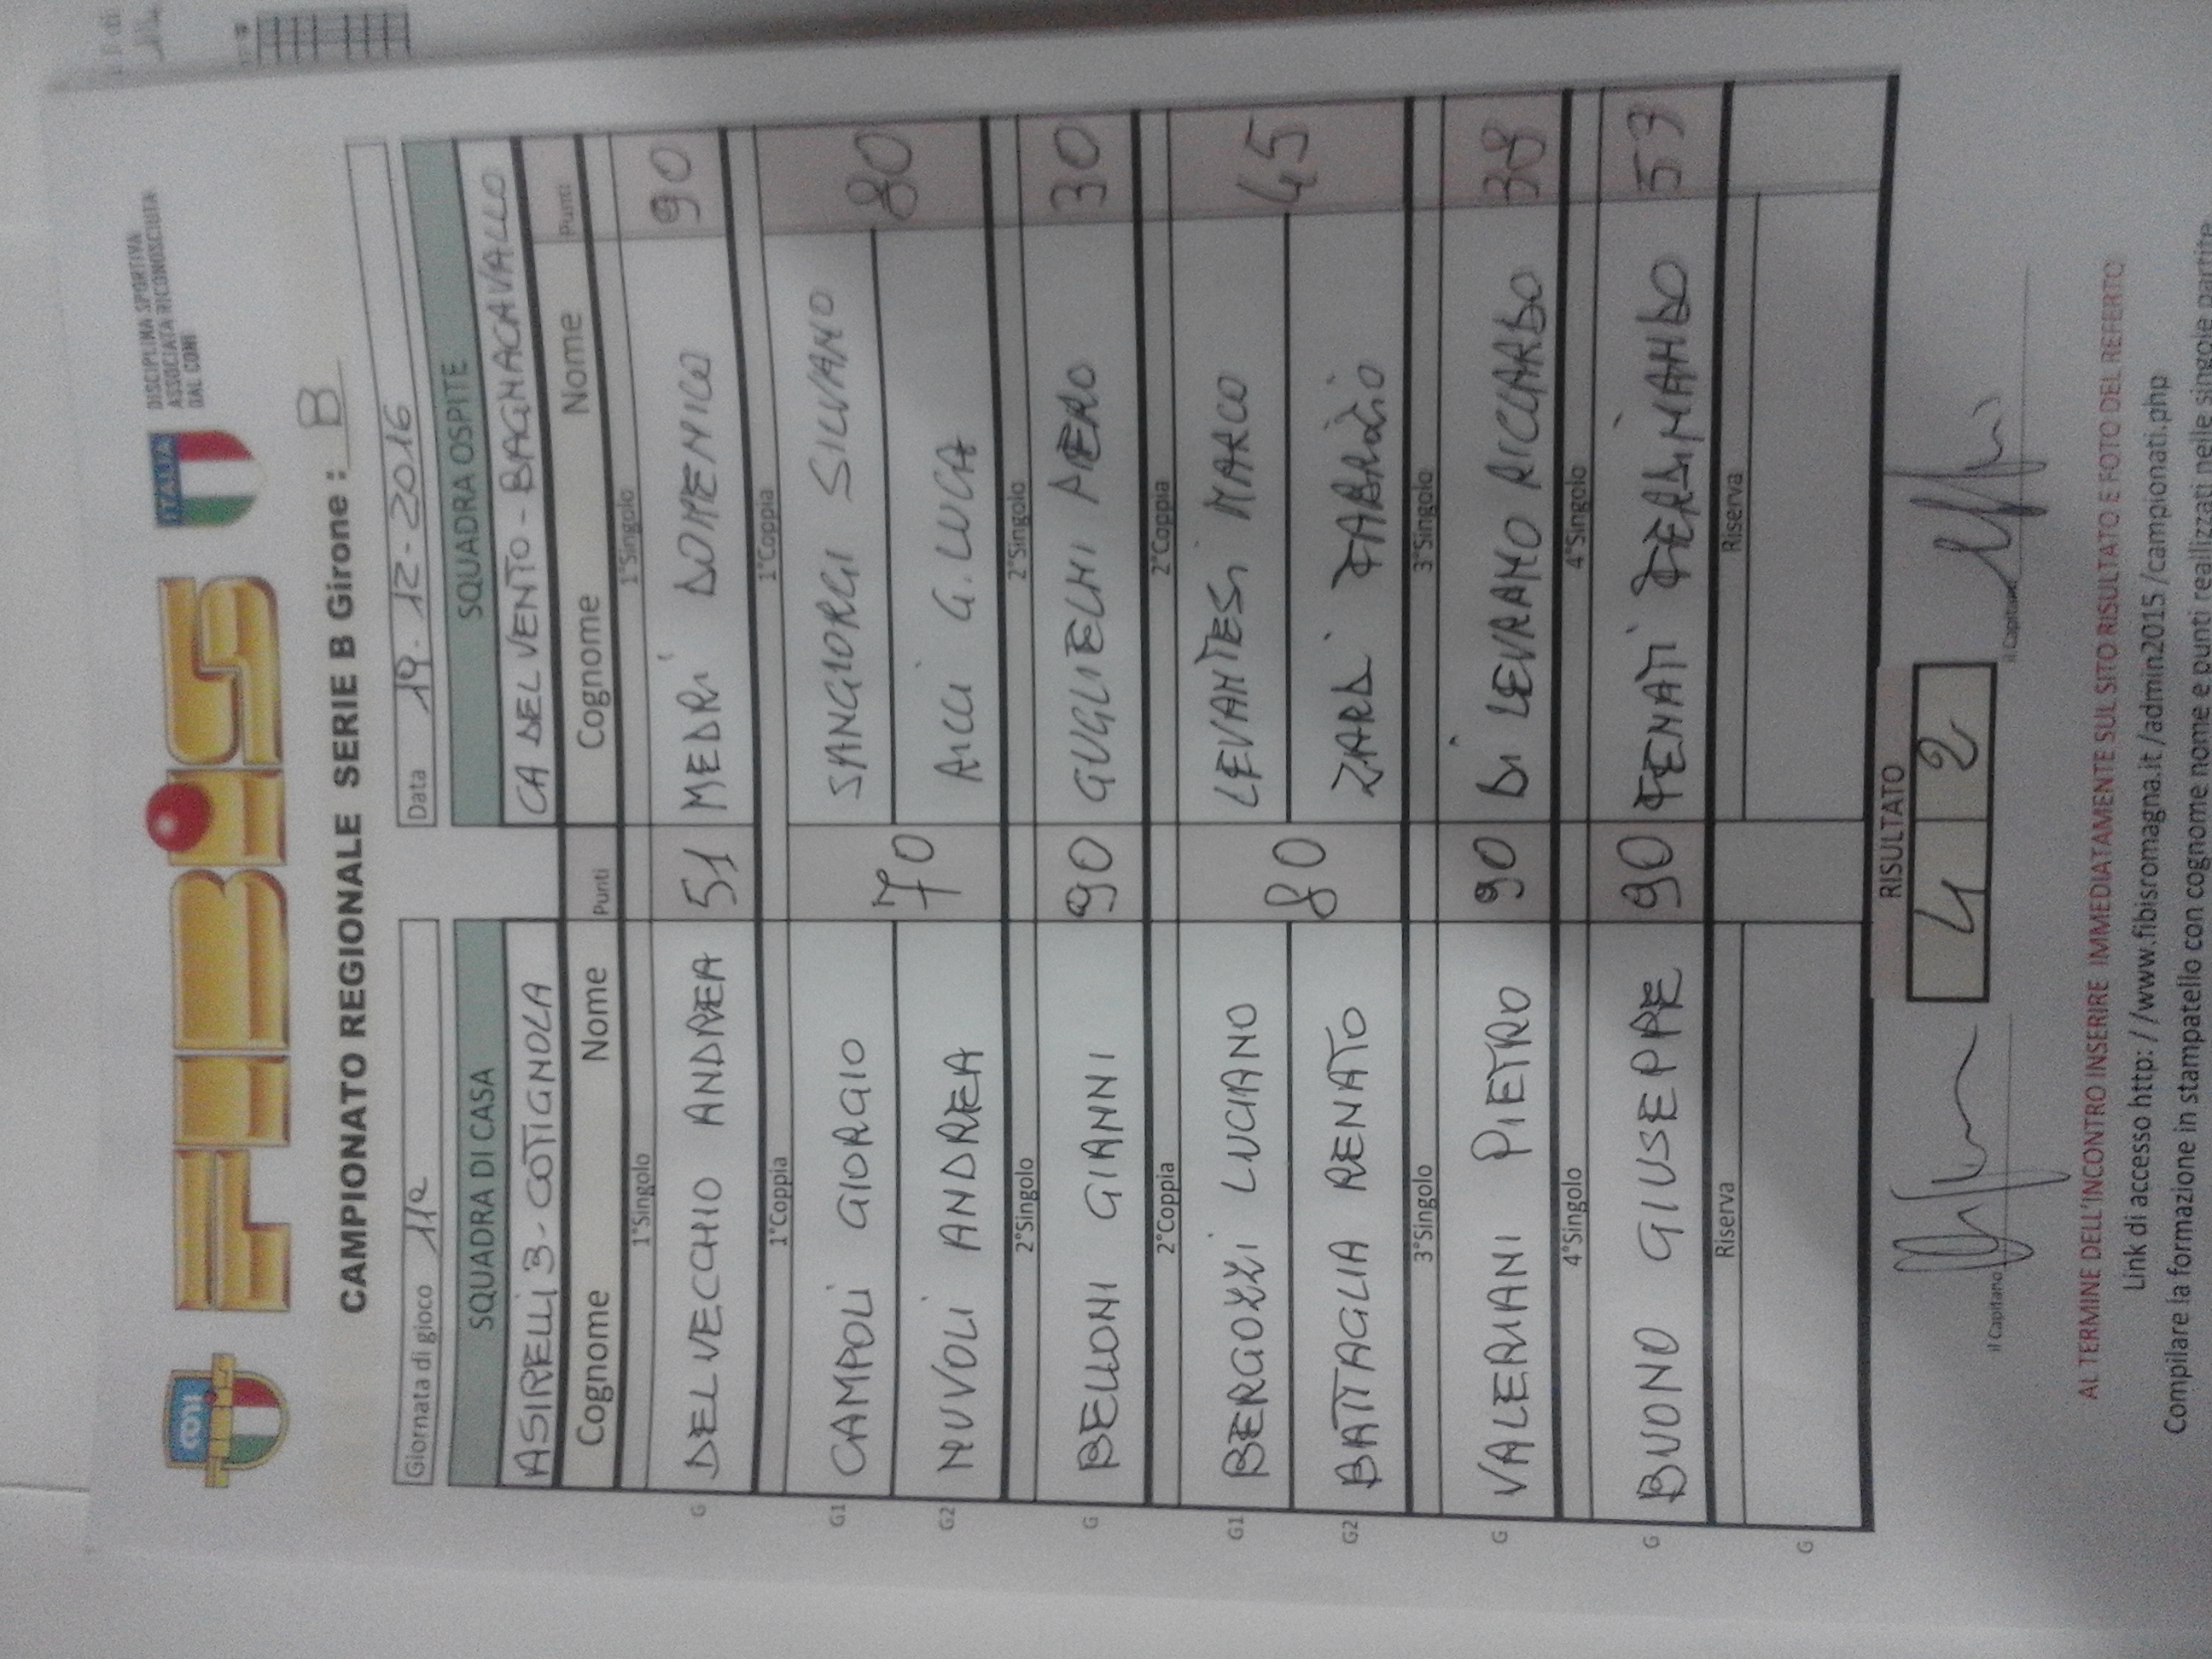 CONI
FIBiS
ITALIA
DISCIPLINA SPORTIVA
ASSOCIATA RICONOSCIUTA
DAL CONI
CAMPIONATO REGIONALE SERIE B Girone : B
Giornata di gioco 11a Data 19-12-2016
SQUADRA DI CASA SQUADRA OSPITE
ASIRELLI 3 - COTIGNOLA CA DEL VENTO - BAGNACAVALLO
Cognome Nome Punti Cognome Nome Punti
1°Singolo 1°Singolo
G DEL VECCHIO ANDREA 51 MEDRi DOMENICO 90
1°Coppia 1°Coppia
G1 CAMPOLi GIORGIO 70 SANGIORGI SILVANO 80
G2 NUVOLi ANDREA Ricci G.LUCA
2°Singolo 2°Singolo
G BELLONI GIANNI 90 GUGLIELMI PIERO 30
2°Coppia 2°Coppia
G1 BERGOZZi LUCIANO 80 LEVANTESi MARCO 45
G2 BATTAGLIA RENATO ZARDi FABRIZIO
3°Singolo 3°Singolo
G VALERIANI PIETRO 90 Di LEVRANO RICCIARDO 38
4°Singolo 4°Singolo
G BUONO GIUSEPPE 90 FENATi FERDiNANDO 53
Riserva Riserva
G
RISULTATO
4 2
il Capitano il Capitano
AL TERMINE DELL'INCONTRO INSERIRE IMMEDIATAMENTE SUL SITO RISULTATO E FOTO DEL REFERTO
Link di accesso http: //www.fibisromagna.it /admin2015 /campionati.php
Compilare la formazione in stampatello con cognome nome e punti realizzati nelle singole partite